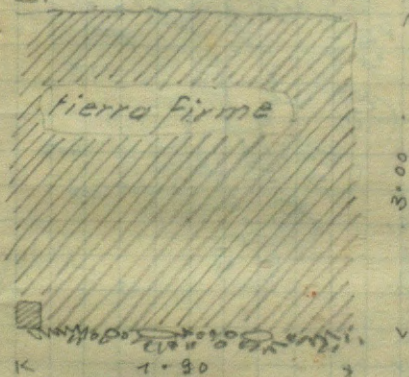 tierra firme
3.00
1.90